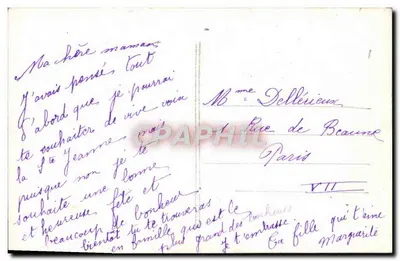 Ma chère maman
J'avais pensé tout
d'abord que je pourrai
te souhaiter de vive voix
la Ste Jeanne, mais
puisque non, je te
souhaite une bonne
et heureuse fête et
beaucoup de bonheur
bientôt tu te trouveras
en famille que est le
plus grand des bonheurs
Ta fille qui t'aime
et t'embrasse.
Marguerite
Mme Dellérieux
1 Rue de Beaune
Paris
VII
CPRPHIL